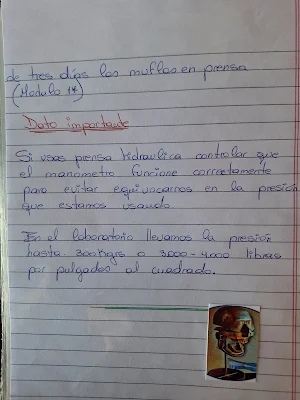 de tres días las muflas en prensa
(Modulo 14)
Dato importante
Si usas prensa hidraulica controlar que
el manometro funcione correctamente
para evitar equivocarnos en la presión
que estamos usando.
En el laboratorio llevamos la presión
hasta 300Kgrs o 3.000-4.000 libras
por pulgadas al cuadrado.